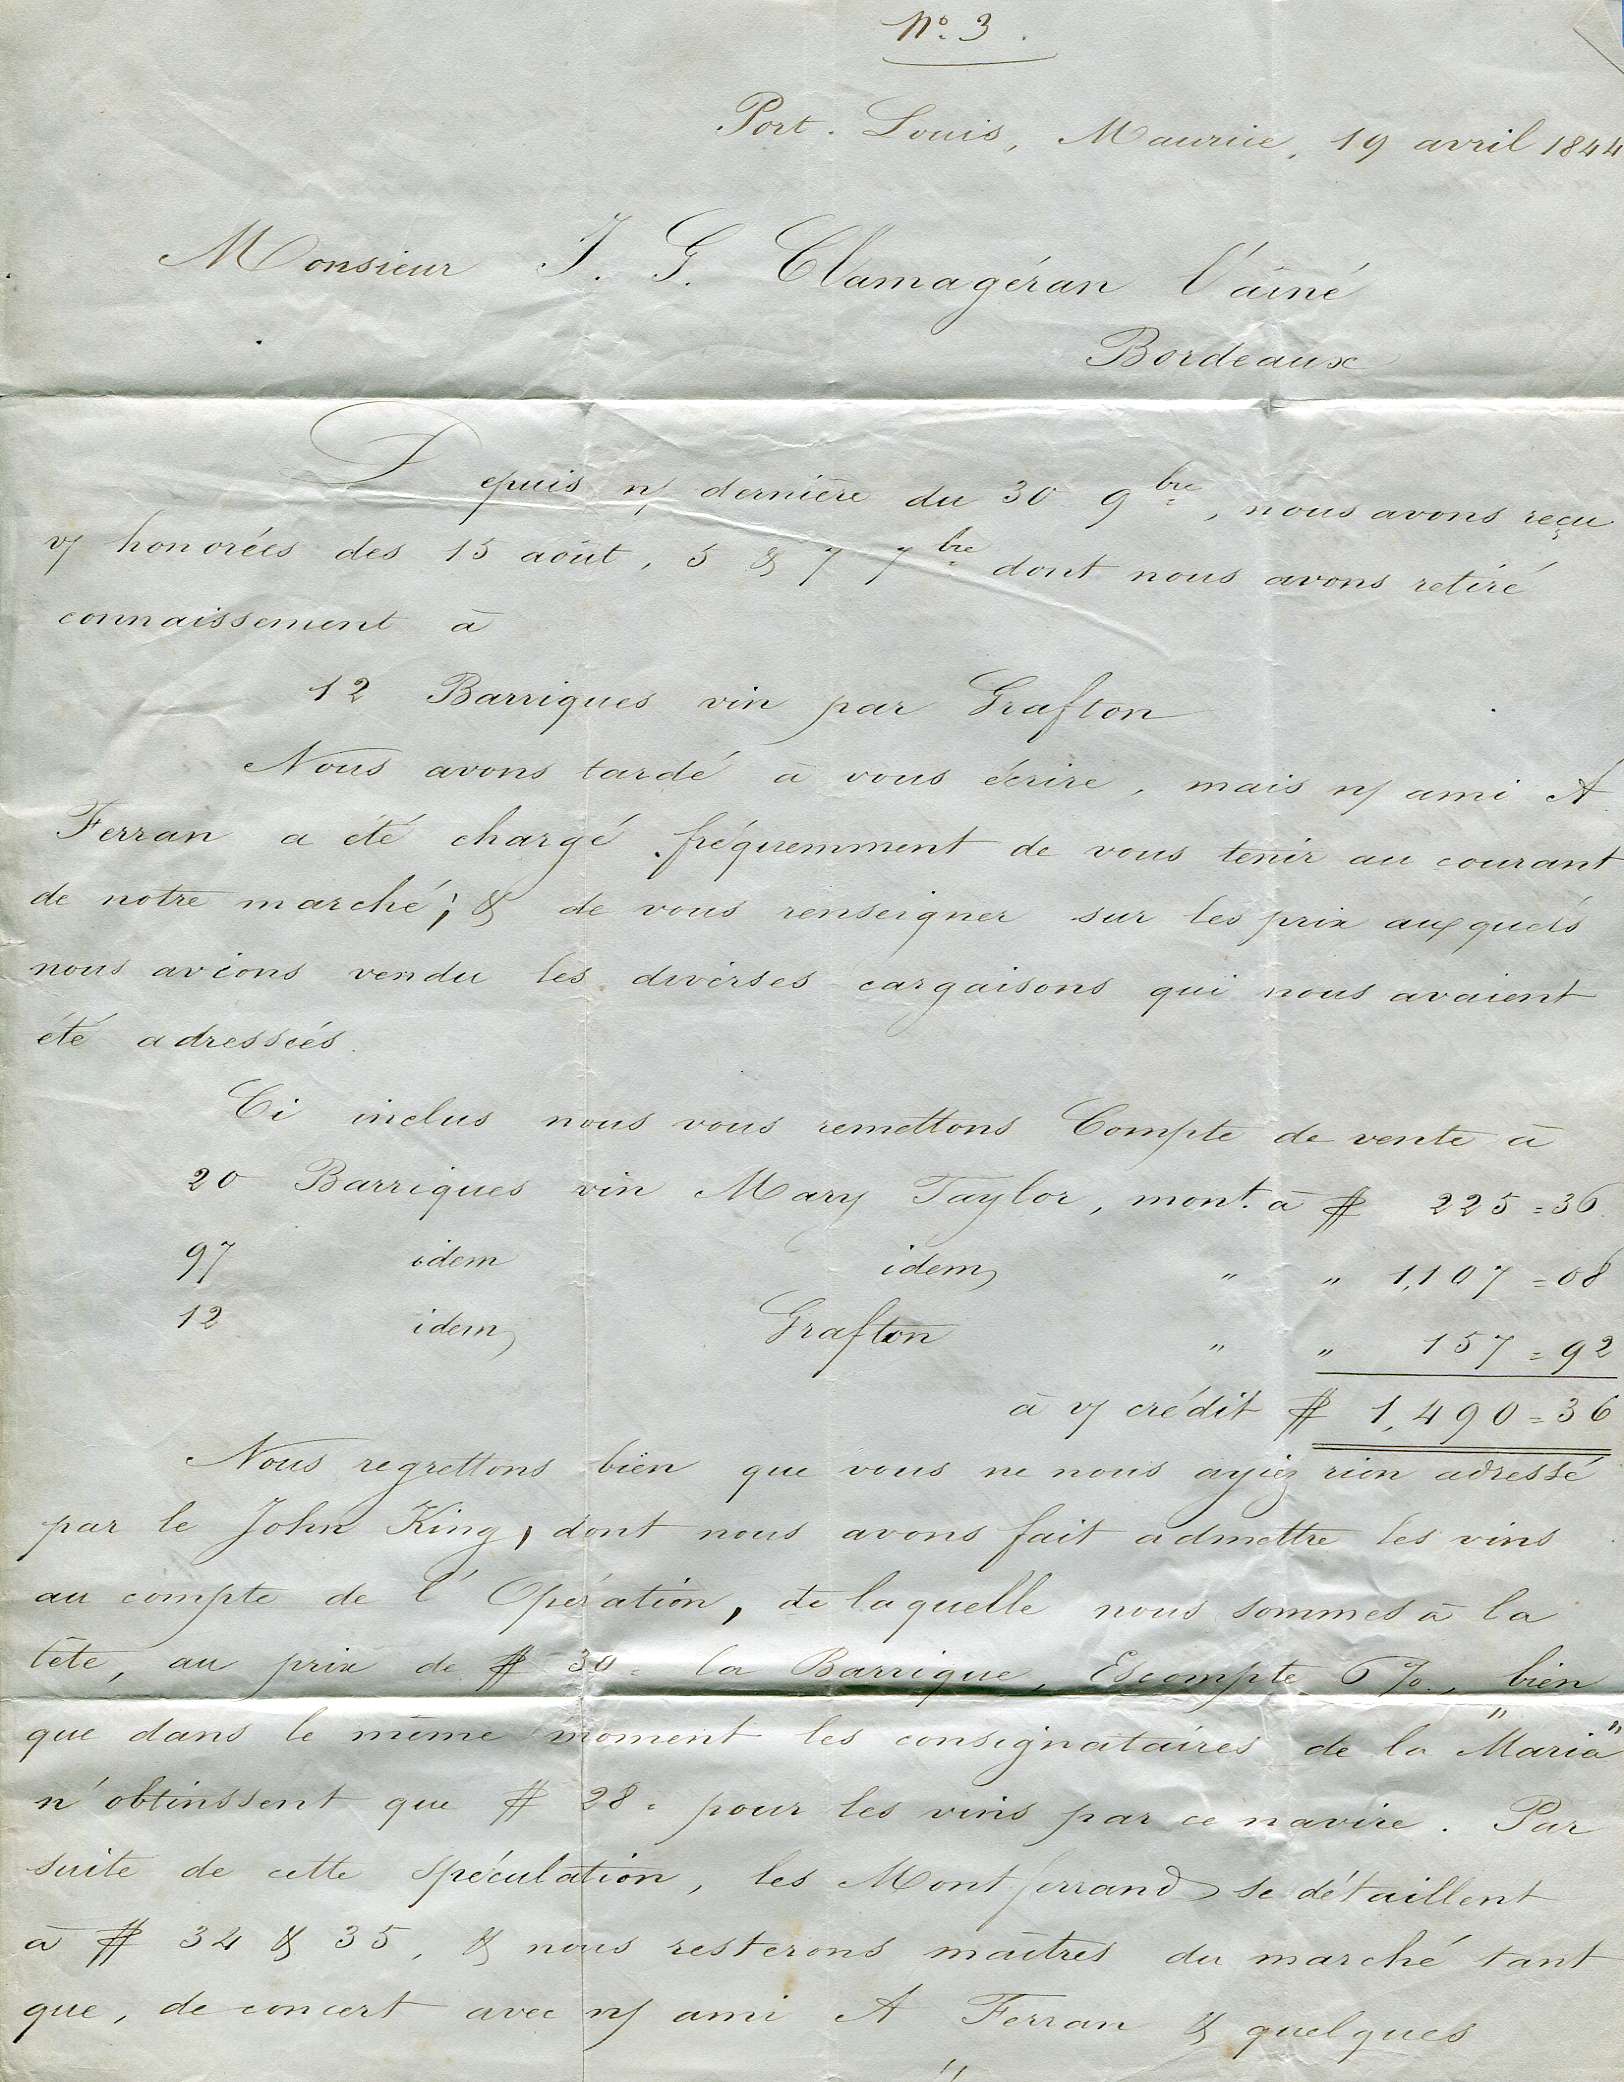 N.o 3.
Port-Louis, Maurice, 19 avril 1844
Monsieur J. G. Clamagéran l'aîné
Bordeaux
Depuis n/ dernière du 30 9.bre, nous avons reçu
v/ honorées des 15 août, 5 & 7 7.bre dont nous avons retiré
connaissement à
12 Barriques vin par Grafton
Nous avons tardé à vous écrire, mais n/ ami A
Ferran a été chargé fréquemment de vous tenir au courant
de notre marché; & de vous renseigner sur les prix auxquels
nous avions vendu les diverses cargaisons qui nous avaient
été adressées.
Ci inclus nous vous remettons Compte de vente à
20 Barriques vin Mary Taylor, mont. à $ 225=36
97 idem idem " " 1,107=08
12 idem Grafton " " 157=92
à v/ crédit $ 1,490=36
Nous regrettons bien que vous ne nous ayiez rien adressé
par le John King, dont nous avons fait admettre les vins
au compte de l'Opération, de laquelle nous sommes à la
tête, au prix de $ 30= la Barrique, Escompte 6%, bien
que dans le même moment les consignataires de la "Maria"
n'obtinssent que $ 28= pour les vins par ce navire. Par
suite de cette spéculation, les Montferrand se détaillent
à $ 34 & 35, & nous resterons maîtres du marché tant
que, de concert avec n/ ami A Ferran & quelques
"